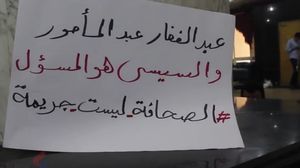 عبدالغفار عبدالمأمور
والسيسى هو المسؤل
#الصحافة_ليست_جريمة